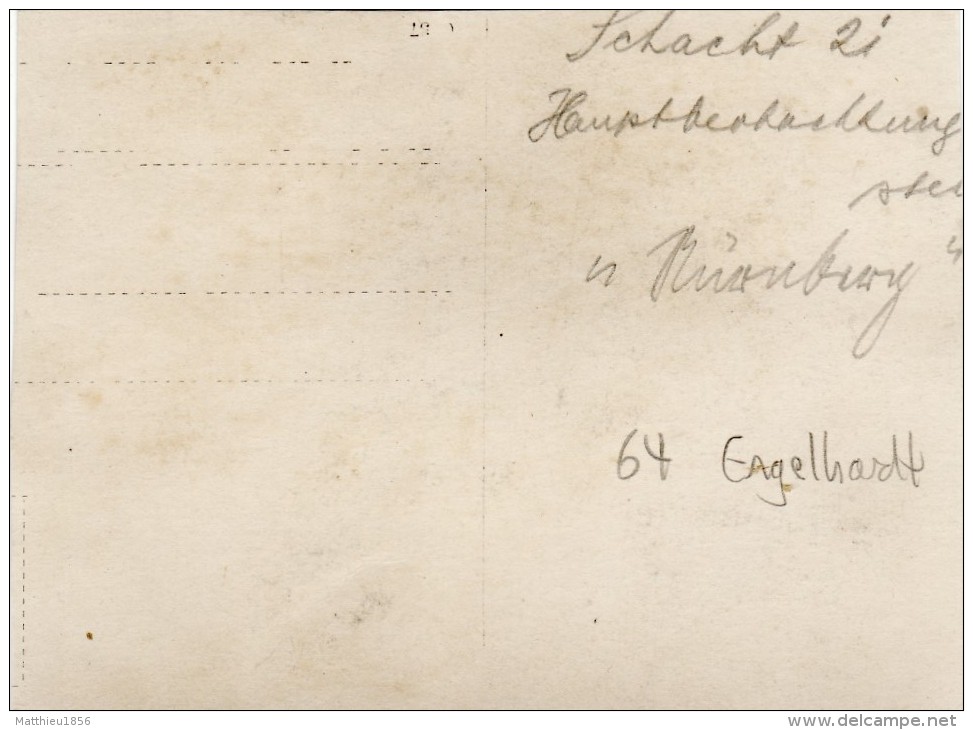 Schacht 2i
Hauptbeobachtung
stel
" Nürnberg "
64 Engelhardt
Matthieu1856
www.delcampe.net